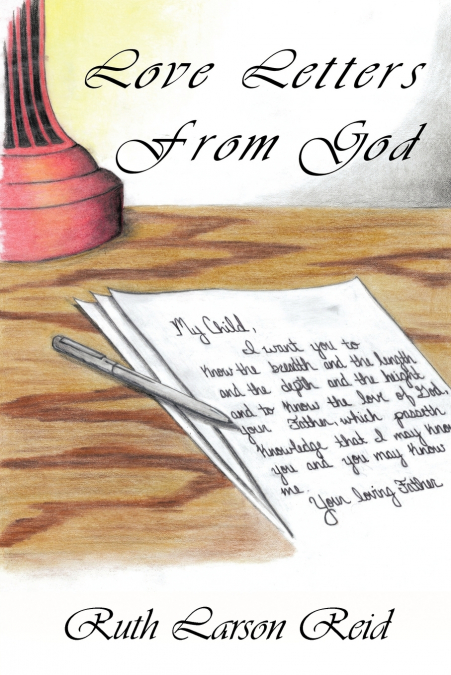 Love Letters
From God
My Child,
I want you to
know the breadth and the length
and the depth and the height
and to know the love of God,
your Father, which passeth
knowledge that I may know
you and you may know
me.
Your loving Father
Ruth Larson Reid